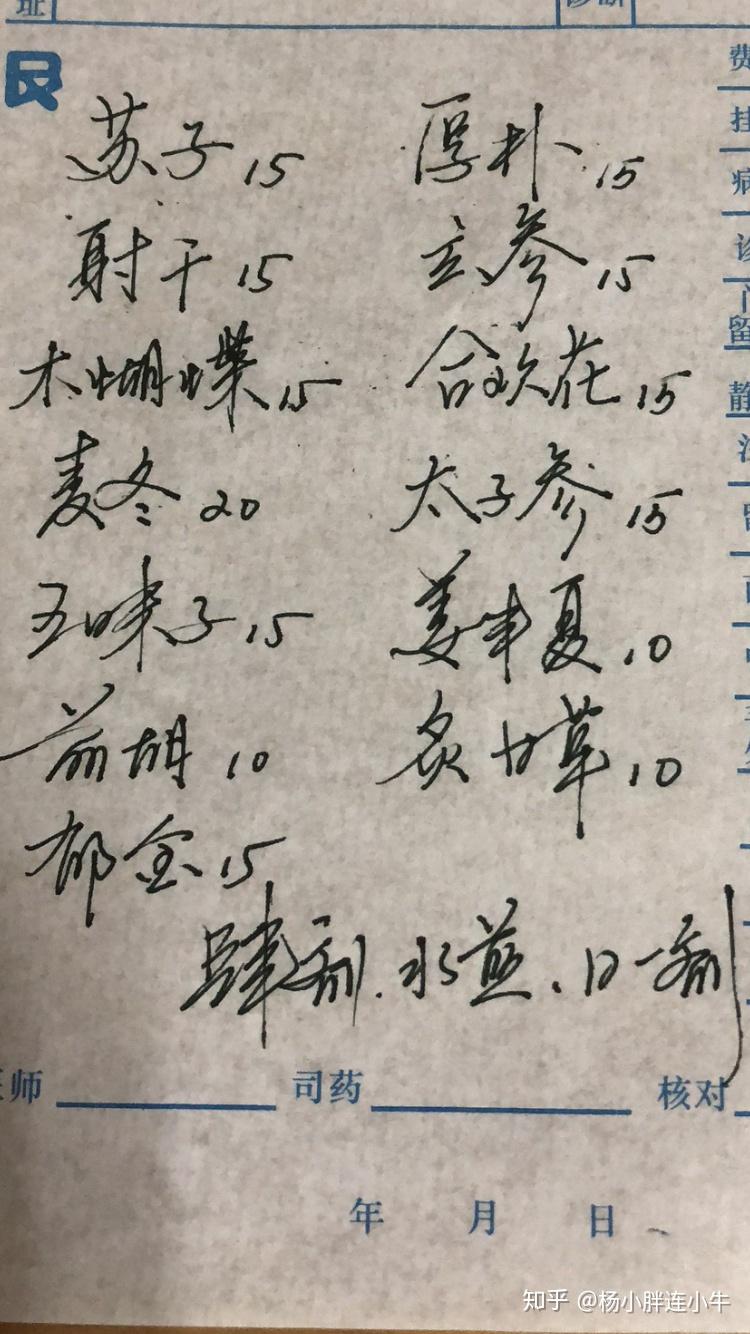 址 诊断
艮
苏子 15 厚朴 15
射干 15 玄参 15
木蝴蝶 15 合欢花 15
麦冬 20 太子参 15
五味子 15 姜半夏 10
前胡 10 炙甘草 10
郁金 15
肆剂. 水煎、日一剂
师 司药 核对
年 月 日
费
挂
病
留
静
知乎 @杨小胖连小牛